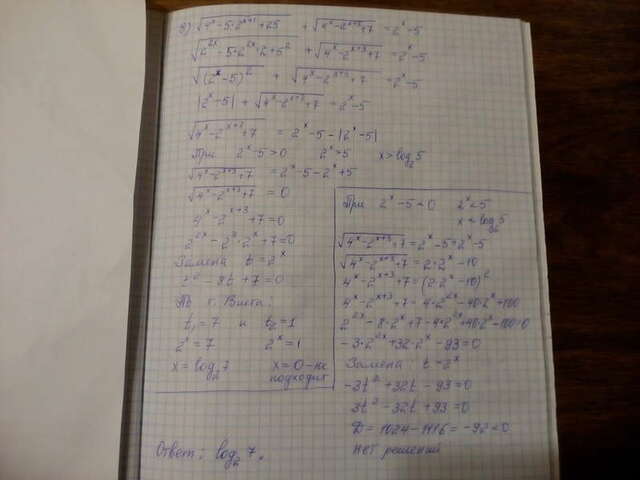 9) √(4ˣ-5·2ˣ⁺¹+25) + √(4ˣ-2ˣ⁺³+7) = 2ˣ-5
√(2²ˣ-5·2ˣ·2+5²) + √(4ˣ-2ˣ⁺³+7) = 2ˣ-5
√((2ˣ-5)²) + √(4ˣ-2ˣ⁺³+7) = 2ˣ-5
|2ˣ-5| + √(4ˣ-2ˣ⁺³+7) = 2ˣ-5
√(4ˣ-2ˣ⁺³+7) = 2ˣ-5-|2ˣ-5|
При 2ˣ-5>0 2ˣ>5 x>log₂5
√(4ˣ-2ˣ⁺³+7) = 2ˣ-5-2ˣ+5
√(4ˣ-2ˣ⁺³+7) = 0
4ˣ-2ˣ⁺³+7=0
2²ˣ-2³·2ˣ+7=0
Замена t=2ˣ
t²-8t+7=0
По т. Виета:
t₁=7 и t₂=1
2ˣ=7 2ˣ=1
x=log₂7 x=0-не
подходит
При 2ˣ-5<0 2ˣ<5
x<log₂5
√(4ˣ-2ˣ⁺³+7)=2ˣ-5+2ˣ-5
√(4ˣ-2ˣ⁺³+7)=2·2ˣ-10
4ˣ-2ˣ⁺³+7=(2·2ˣ-10)²
4ˣ-2ˣ⁺³+7-4·2²ˣ-40·2ˣ+100
2²ˣ-8·2ˣ+7-4·2²ˣ+40·2ˣ-100=0
-3·2²ˣ+32·2ˣ-93=0
Замена: t=2ˣ
-3t²+32t-93=0
3t²-32t+93=0
D=1024-1116=-92<0
нет решений
Ответ: log₂7.